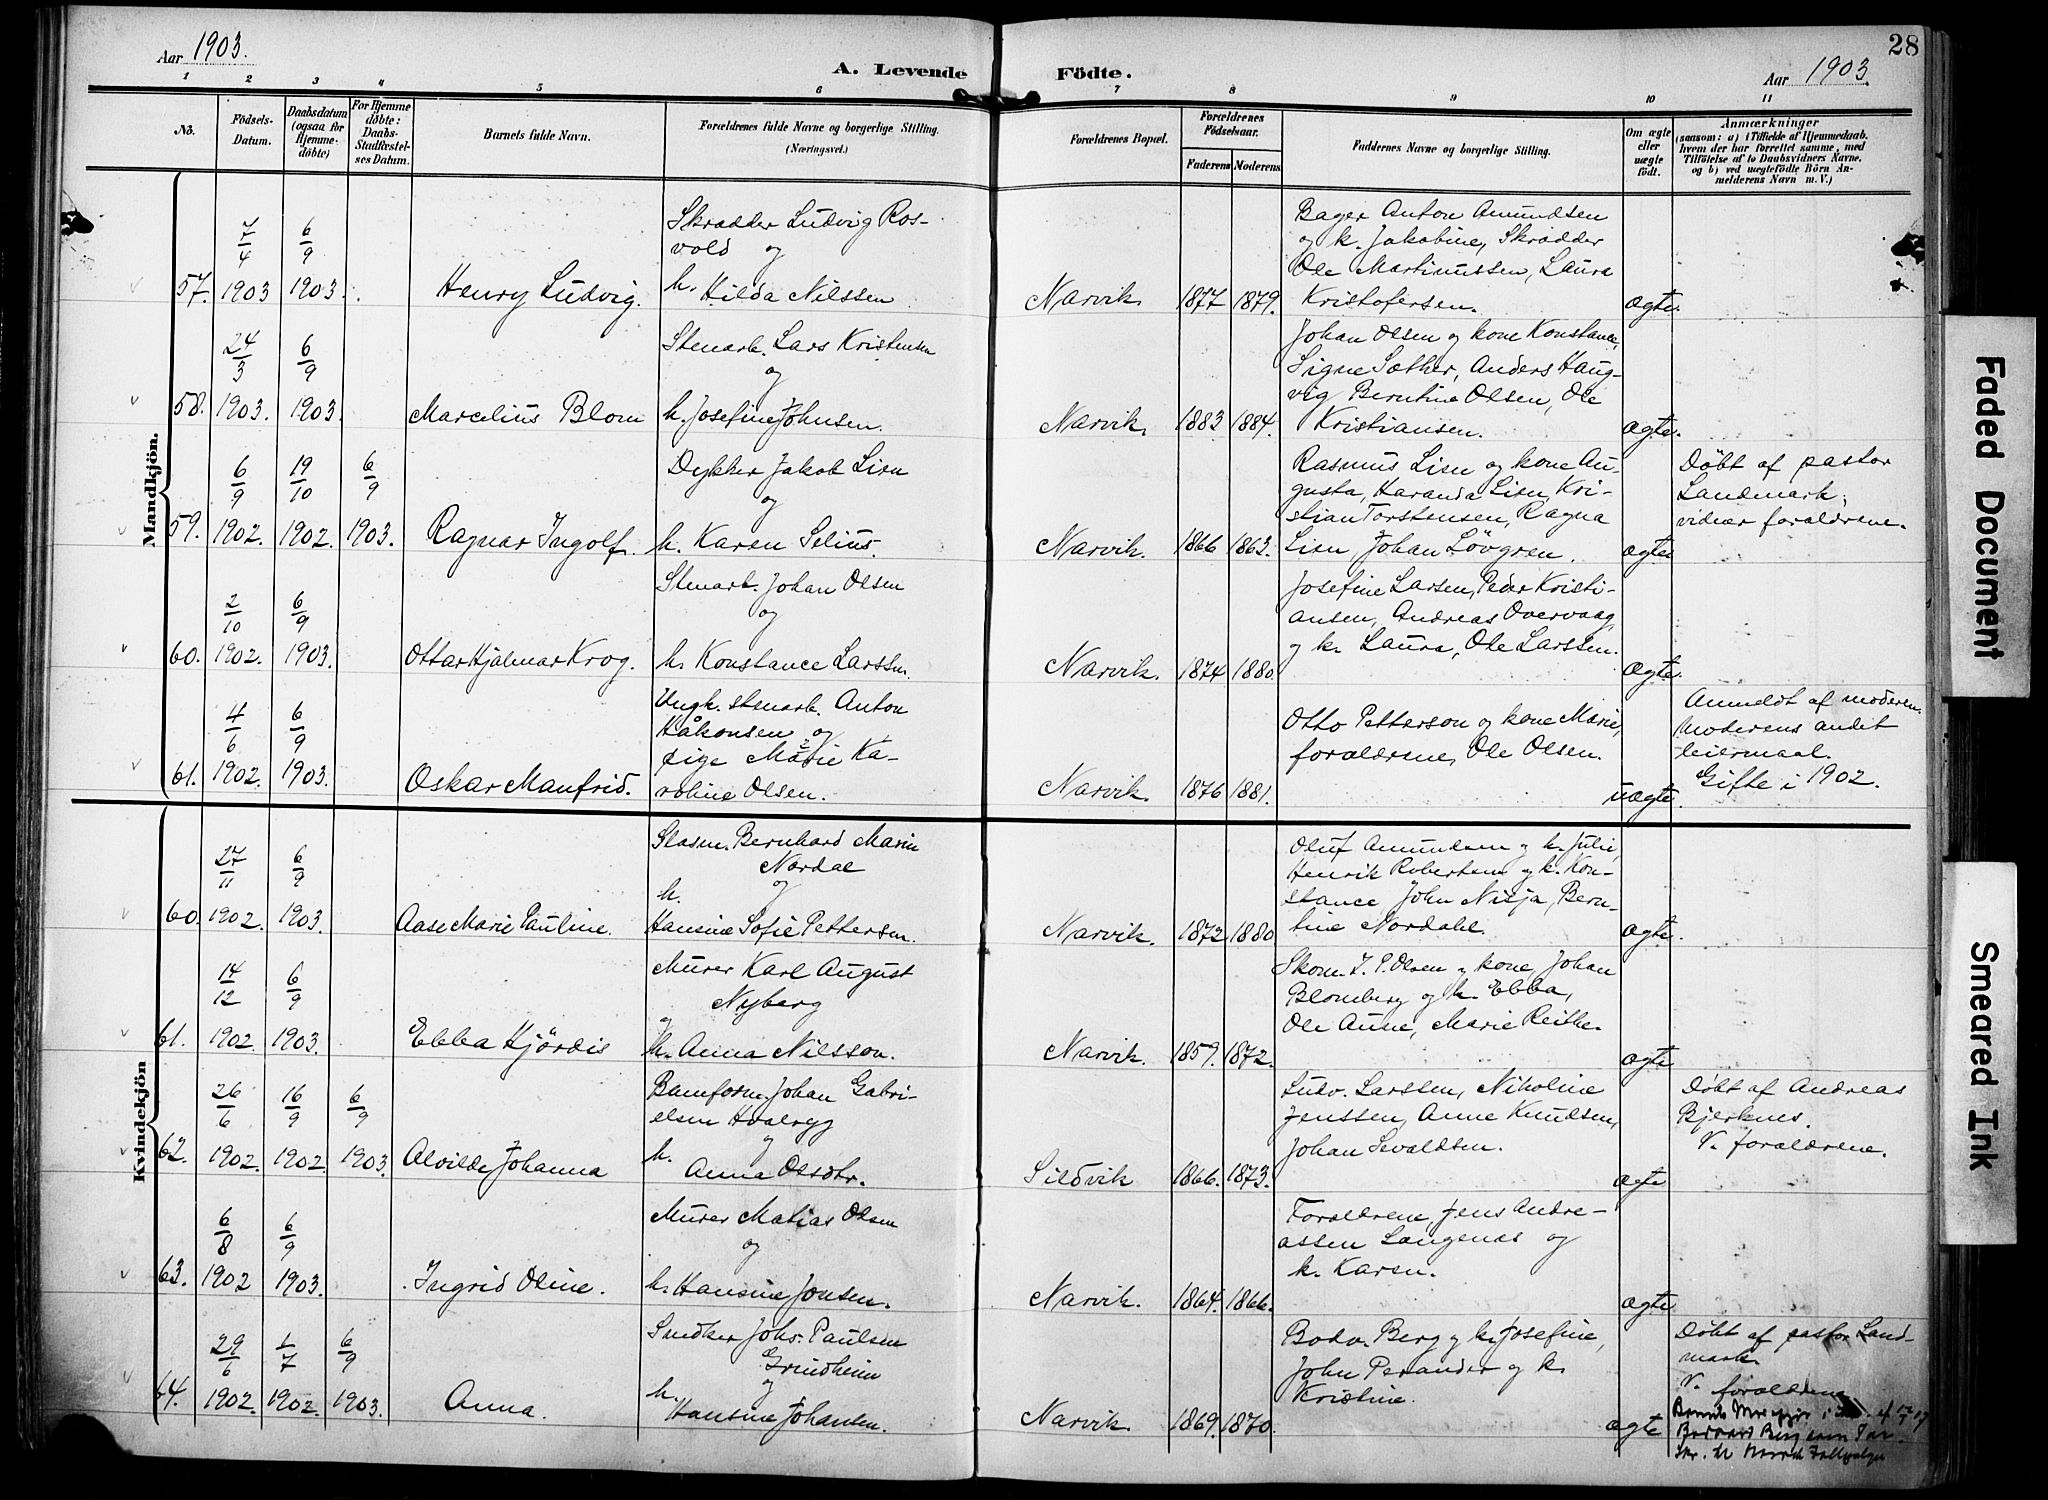 Aar 1903.
A. Levende Födte.
Aar 1903
28
1 2 3 4 5 6 7 8 9 10 11
No.
Födsels-
Datum.
Daabsdatum
(ogsaa för
Hjemme-
döbte)
For Hjemme
döbte:
Daabs-
Stadfæstel-
ses Datum.
Barnets fulde Navn.
Forældrenes fulde Navne og borgerlige Stilling.
(Næringsvei.)
Forældrenes Bopæl.
Forældrenes
Födselsaar.
Faderens Moderens
Faddernes Navne og borgerlige Stilling.
Om ægte
eller
uægte
födt.
Anmærkninger
(saasom: a) i Tilfælde af Hjemmedaab,
hvem der har forrettet samme, med
Tilföielse af to Daabsvidners Navne,
og b) ved uægtefödte Börn An-
melderens Navn m. V.)
Mandkjön.
57. 7/4 1903 6/9 1903.
Henry Ludvig.
Skrædder Ludvig Ros-
vold og
h. Hilda Nilssen
Narvik 1877 1879.
Bager Anton Amundsen
og k. Jakobine, Skrædder
Ole Martinussen, Laura
Kristofersen.
ægte.
58. 24/3 1903. 6/9 1903.
Marcelius Blom
Stenarb. Lars Kristensen
og
h. Josefine Johnsen.
Narvik. 1883 1884.
Johan Olsen og kone Konstance,
Signe Sæther, Anders Haug-
vig Berntine Olsen, Ole
Kristiansen.
ægte.
59. 6/9 1902. 19/10 1902. 6/9 1903.
Ragnar Ingolf.
Dykker Jakob Lien
og
h. Karen Selius.
Narvik. 1866 1863.
Rasmus Lien og kone Au-
gusta, Haranda Lien, Kri-
stian Torstensen, Ragna
Lien, Johan Lövgren.
ægte
Döbt af pastor
Landmark;
vidner forældrene.
60. 2/10 1902. 6/9 1903.
Ottar Hjalmar Krog.
Stenarb. Johan Olsen
og
h. Konstance Larssen.
Narvik. 1874 1880.
Josefine Larsen, Peder Kristi-
ansen, Andreas Overvaag,
og k. Laura, Ole Larssen.
ægte.
61. 4/6 1902. 6/9 1903.
Oskar Manfrid.
Ungk. stenarb. Anton
Håkonsen og
pige Marie Ka-
roline Olsen.
Narvik. 1876 1881.
Otto Petterson og kone Marie,
forældrene, Ole Olsen.
uægte.
Anmeldt af moderen.
Moderens andet
leiermaal.
Gifte i 1902.
Kvindekjön
60. 27/11 1902. 6/9 1903.
Aase Marie Pauline.
Slasm. Bernhard Marin
Nordal
og
h.
Hansine Sofie Pettersen.
Narvik. 1872 1880
Oluf Amundsen og k. Julie,
Henrik Robertsen og k. Kon-
stance John Nilja, Bern-
tine Nordahl.
ægte.
61. 14/12 1902. 6/9 1903.
Ebba Hjördis
Murer Karl August
Nyberg
og
h. Anna Nilsson.
Narvik. 1859. 1872.
Skom. I. P. Olsen og kone, Johan
Blomberg og k. Ebba,
Ole Aune, Marie Reithe.
ægte
62. 26/6 1902. 16/9 1902 6/9 1903.
Alvilde Johanna
Baneform. Johan Gabri-
elsen Hvalryg
og
h.
Anna Olsdtr.
Sildvik 1866. 1873.
Ludv. Larssen, Nikoline
Jenssen, Anne Knudsen,
Johan Sevaldsen.
ægte
Döbt af Andreas
Bjerknes.
V. forældrene.
63. 6/8 1902 6/9 1903.
Ingrid Oline.
Murer Matias Olsen
og
h. Hansine Jensen.
Narvik. 1864. 1866.
Forældrene, Jens Andre-
assen Langenæs og
k. Karen.
ægte
64. 29/6 1902. 1/7 1902. 6/9 1903.
Anna.
Snedker Johs. Paulsen
Grindheim
og
h.
Hansine Johansen.
Narvik. 1869. 1870.
Bodv. Berg og k. Josefine,
John Perander og k.
Kristine.
ægte
Döbt af pastor Land-
mark.
V. forældrene
Faded Document
Smeared Ink